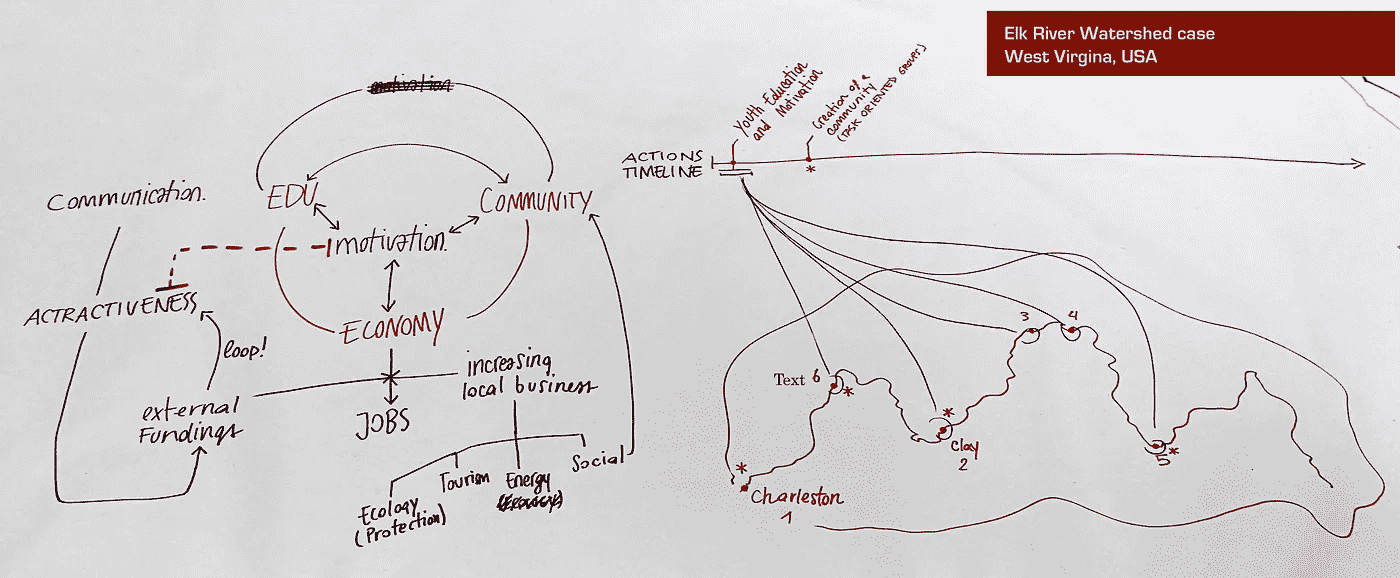 Elk River Watershed case
West Virgina, USA
motivation
Communication.
EDU
COMMUNITY
motivation.
ACTRACTIVENESS
ECONOMY
loop!
increasing
local business
external
Fundings
JOBS
Social
Tourism
Energy
Ecology
(Protection)
Youth Education
and Motivation
Creation of a
community
(TASK ORIENTED GROUPS)
ACTIONS
TIMELINE
*
3
4
Text 6
*
*
Clay
2
5
*
*
Charleston
1